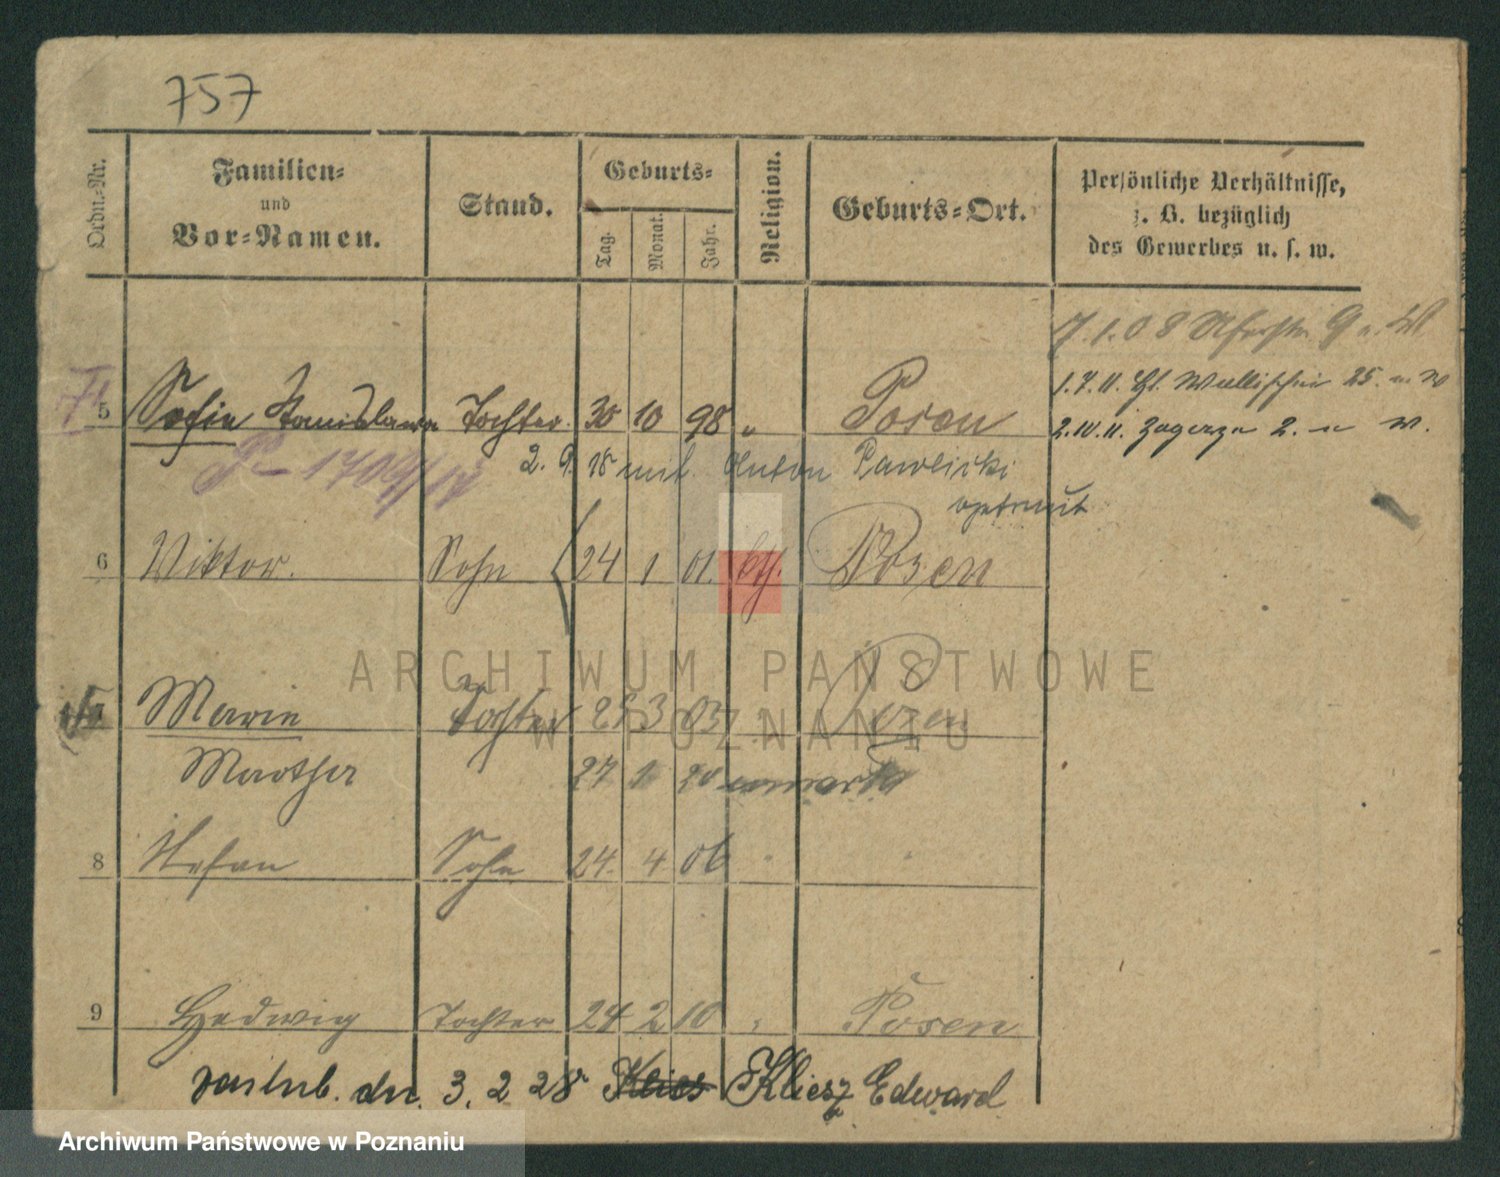 757
Ordn.-Nr.
Familien-
und
Vor-Namen.
Stand.
Geburts-
Tag.
Monat.
Jahr.
Religion.
Geburts-Ort.
Persönliche Verhältnisse,
z. B. bezüglich
des Gewerbes u. s. w.
7.1.08 9
1.7.11. Wallischei 25.
2.10.11. Zagorze 2. W.
5 Sofie Stanislawa Tochter. 30 10 98 " Posen
2. 9. 18 mit Anton Pawlicki
getraut
6 Viktor. Sohn 24 1 01. kth. Posen
7 Marie Tochter 25 3 03 " Posen
Martha 27 1
8 Stefan Sohn 24. 4. 06 "
9 Hedwig Tochter 24 2 10 " Posen
3. 2. 28 Klics Kliesz Edward
ARCHIWUM PAŃSTWOWE
W POZNANIU
Archiwum Państwowe w Poznaniu